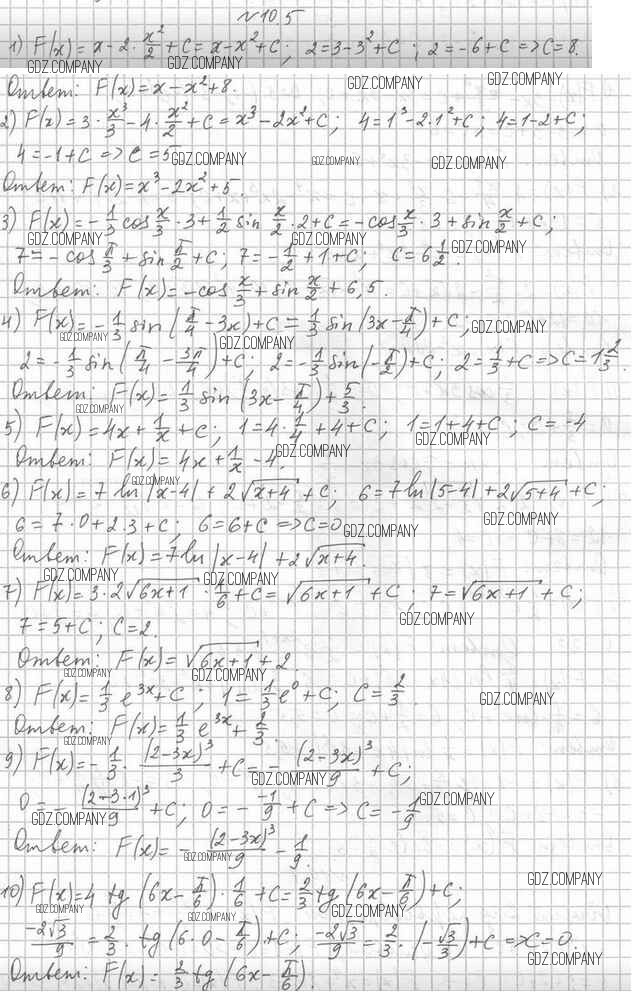 №10.5
1) F(x) = x - 2 · x²/2 + C = x - x² + C; 2 = 3 - 3² + C; 2 = -6 + C => C = 8.
GDZ.COMPANY GDZ.COMPANY
Ответ: F(x) = x - x² + 8. GDZ.COMPANY GDZ.COMPANY
2) F(x) = 3 · x³/3 - 4 · x²/2 + C = x³ - 2x² + C; 4 = 1³ - 2·1² + C; 4 = 1 - 2 + C;
4 = -1 + C => C = 5 GDZ.COMPANY GDZ.COMPANY GDZ.COMPANY
Ответ: F(x) = x³ - 2x² + 5.
3) F(x) = - 1/3 cos x/3 · 3 + 1/2 sin x/2 · 2 + C = -cos x/3 · 3 + sin x/2 + C;
GDZ.COMPANY GDZ.COMPANY GDZ.COMPANY
7 = -cos π/3 + sin π/2 + C; 7 = - 1/2 + 1 + C; C = 6 1/2.
Ответ: F(x) = -cos x/3 + sin x/2 + 6,5.
4) F(x) = - 1/3 sin (π/4 - 3x) + C = 1/3 sin (3x - π/4) + C; GDZ.COMPANY
GDZ.COMPANY GDZ.COMPANY
2 = - 1/3 sin (π/4 - 3π/4) + C; 2 = - 1/3 sin (- π/2) + C; 2 = 1/3 + C => C = 1 2/3.
Ответ: F(x) = 1/3 sin (3x - π/4) + 5/3.
GDZ.COMPANY
5) F(x) = 4x + 1/x + C; 1 = 4 · 1/4 + 4 + C; 1 = 1 + 4 + C; C = -4
GDZ.COMPANY GDZ.COMPANY
Ответ: F(x) = 4x + 1/x - 4.
GDZ.COMPANY
6) F(x) = 7 ln |x-4| + 2√(x+4) + C; 6 = 7 ln |5-4| + 2√(5+4) + C;
6 = 7 · 0 + 2 · 3 + C; 6 = 6 + C => C = 0 GDZ.COMPANY GDZ.COMPANY
Ответ: F(x) = 7 ln |x-4| + 2√(x+4).
GDZ.COMPANY GDZ.COMPANY
7) F(x) = 3 · 2√(6x+1) · 1/6 + C = √(6x+1) + C; 7 = √(6x+1) + C;
GDZ.COMPANY
7 = 5 + C; C = 2.
Ответ: F(x) = √(6x+1) + 2.
GDZ.COMPANY GDZ.COMPANY
8) F(x) = 1/3 e³ˣ + C; 1 = 1/3 e⁰ + C; C = 2/3. GDZ.COMPANY
Ответ: F(x) = 1/3 e³ˣ + 2/3.
GDZ.COMPANY
9) F(x) = - 1/3 · (2-3x)³/3 + C = - (2-3x)³/9 + C;
GDZ.COMPANY
0 = - (2-3·1)³/9 + C; 0 = - -1/9 + C => C = - 1/9
GDZ.COMPANY GDZ.COMPANY
Ответ: F(x) = - (2-3x)³/9 - 1/9.
GDZ.COMPANY GDZ.COMPANY
10) F(x) = 4 tg (6x - π/6) · 1/6 + C = 2/3 tg (6x - π/6) + C;
GDZ.COMPANY GDZ.COMPANY GDZ.COMPANY
-2√3/9 = 2/3 · tg (6·0 - π/6) + C; -2√3/9 = 2/3 · (- √3/3) + C => C = 0.
GDZ.COMPANY
Ответ: F(x) = 2/3 tg (6x - π/6).